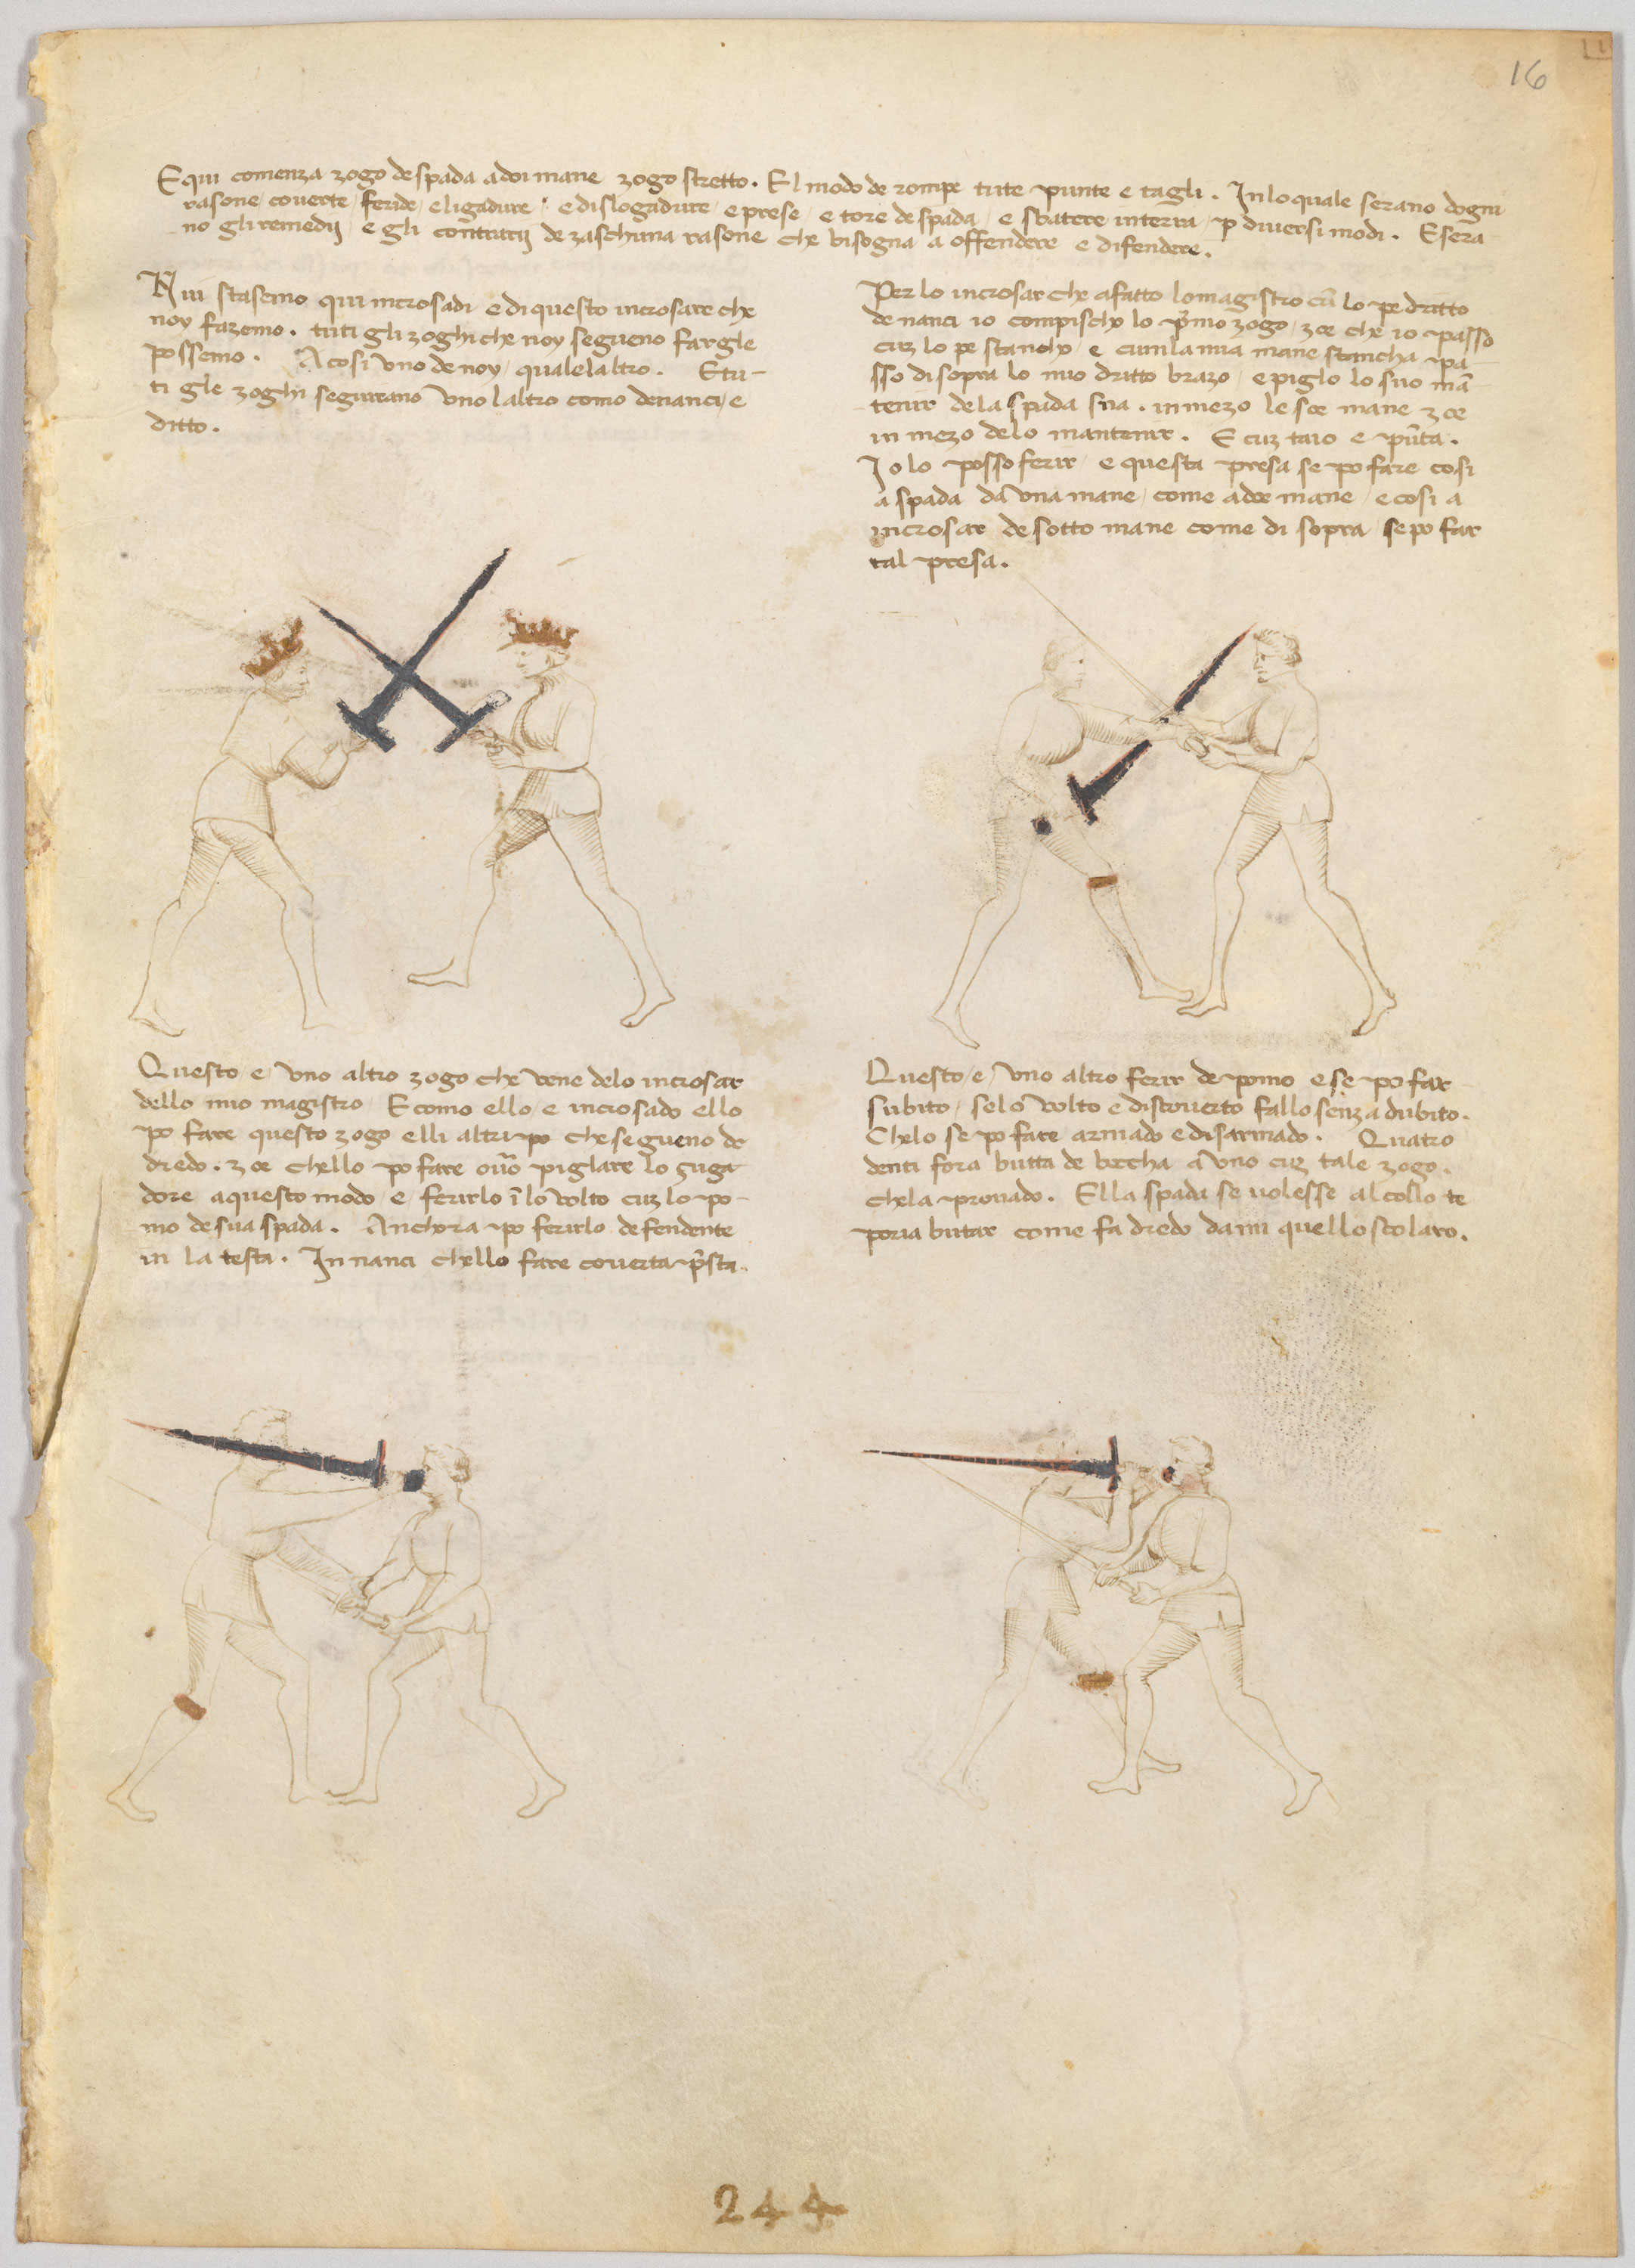 16
E qui comenza zogo de spada a doi mane zogo stretto. El modo de rompe tute punte e tagli. In lo quale serano dogni
rasone coverte / feride / e ligadure / e dislogadure / e prese / e tore de spada / e sbatere in terra / p diversi modi. E sera-
no gli remedij / e gli contrarij de zaschuna rasone che bisogna a offendere e difendere.
Nui stasemo qui incrosadi e di questo incrosare che
noy fazemo. tuti gli zoghi che noy segueno far gle
possemo. A cosi uno de noy / quale laltro. E tu-
ti gle zoghi seguirano uno laltro como denanci e
ditto.
Per lo incrosar che a fatto lo magistro cū lo pe dritto
denanci io compischo lo p̄mo zogo / zoe che io passo
cuz lo pe stancho / e cum la mia mane stancha pa-
sso di sopra lo mio dritto brazo / e piglo lo suo mā-
tenir de la spada sua. in mezo le soe mane zoe
in mezo delo mantenir. E cuz taio e pūta.
Io lo posso ferir / e questa presa se po fare cosi
a spada da una mane / come a doe mane / e cosi a
incrosar de sotto mane come di sopra / se po far
tal presa.
Questo e uno altro zogo che vene delo incrosar
dello mio magistro / E como ello e incrosado ello
po fare questo zogo e lli altri po che segueno de
dredo. zoe chello po fare ovō piglare lo zuga
dore a questo modo / e ferirlo ī lo volto cuz lo po-
mo de sua spada. Anchora po ferirlo de fendente
in la testa. In nanci chello fare coverta p̄sta.
Questo / e / uno altro ferir de pomo e se po far
subito / se lo volto e discoverto fallo senza dubito.
Che lo se po fare armado e disarmado. Quatro
denti fora butta de boccha a uno cuz tale zogo.
che la provado. E lla spada se volesse al collo te
poria butar come fa dredo da mi quello scolaro.
244